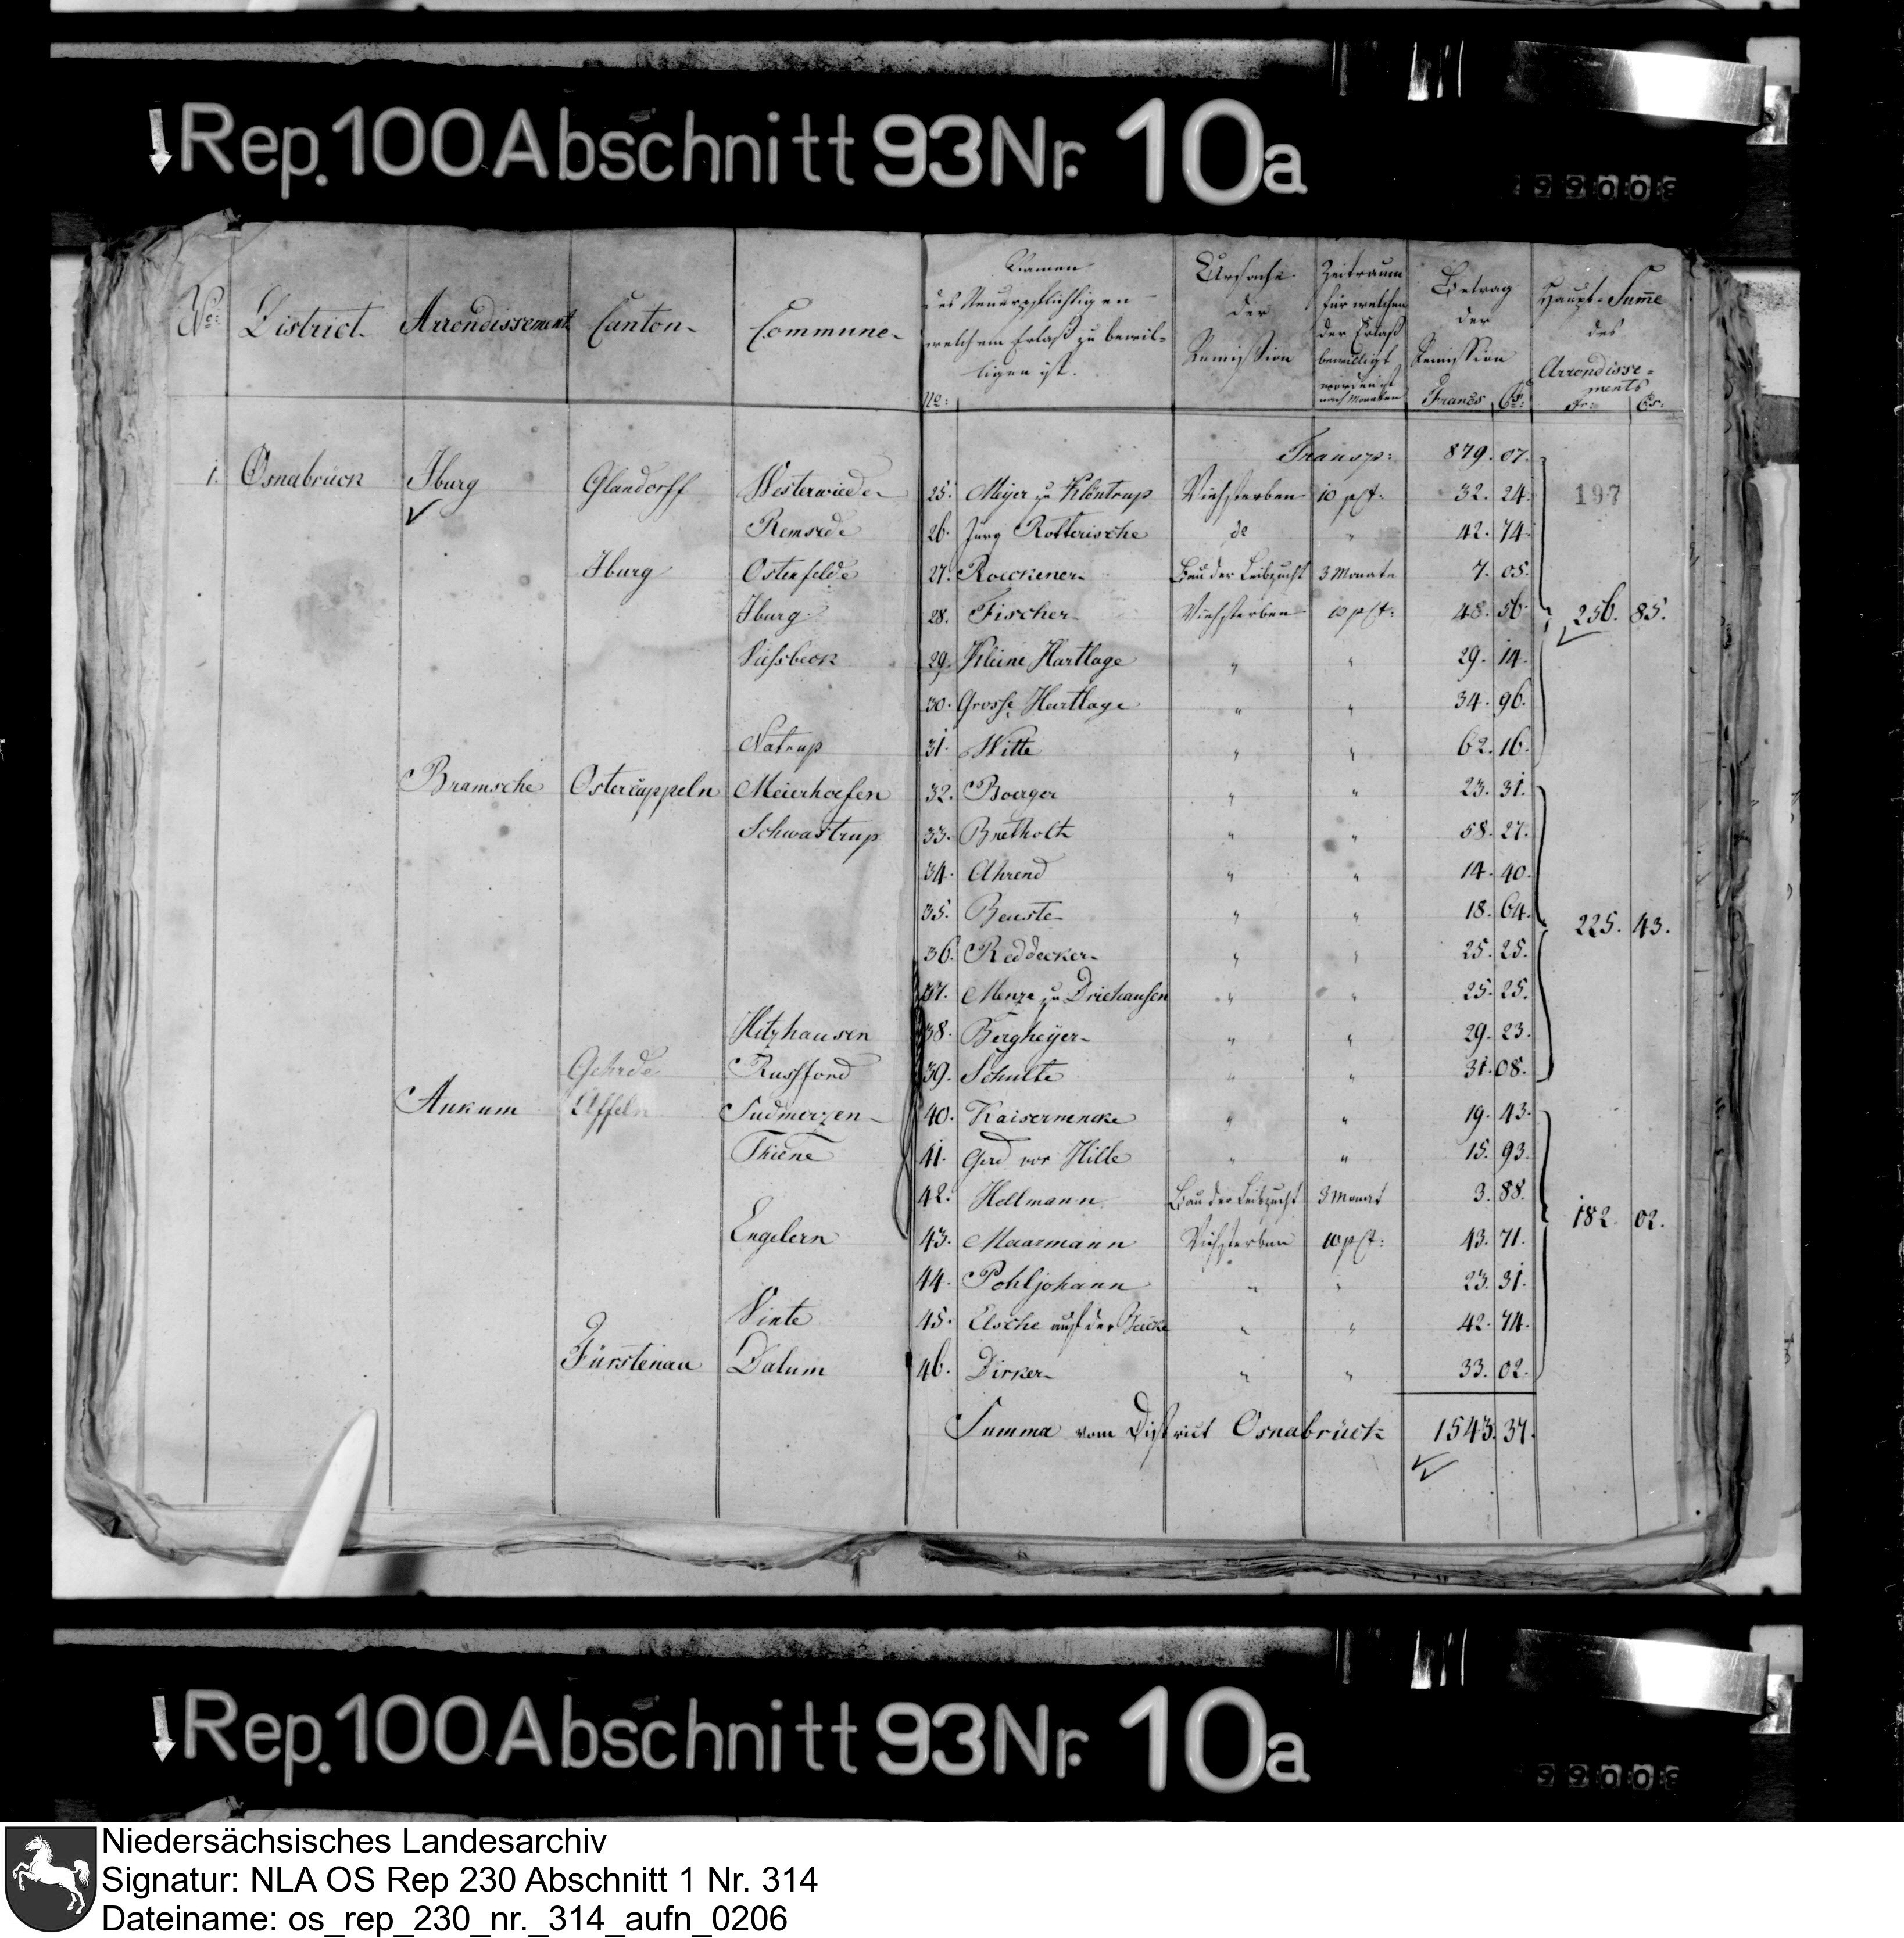 Rep. 100 Abschnitt 93 Nr. 10a
No: District Arrondissement Canton Commune No: Namen des Steuerpflichtigen welchem Erlaß zu bewilligen ist. Ursache der Remission Zeitraum für welchen der Erlaß bewilligt worden ist nach Monaten Betrag der Remission Francs Cs: Haupt-Summe des Arrondissements Fr: Cs:
Transp: 879. 07.
1. Osnabrück Iburg Glandorff Westerwiede 25. Meyer zu Klöntrup Viehsterben 10 pCt: 32. 24. 197
Remsede 26. Jürg Rotterische do " 42. 74.
Iburg Ostenfelde 27. Roeckener Bau der Leibzucht 3 Monate 7. 05.
Iburg 28. Fischer Viehsterben 10 pCt: 48. 56. 256. 85.
29. Kleine Hartlage " " 29. 14.
30. Grosse Hartlage " " 34. 96.
Natrup 31. Witte " " 62. 16.
Bramsche Ostercappeln Meierhoefen 32. Boerger " " 23. 31.
Schwastrup 33. Bretholt " " 58. 27.
34. Ahrend " " 14. 40.
35. Beuste " " 18. 64. 225. 43.
36. Reddecker " " 25. 25.
37. Menze zu Driehausen " " 25. 25.
Hitzhausen 38. Bergheyer " " 29. 23.
Gehrde Russford 39. Schulte " " 31. 08.
Ankum Uffeln Sudmerzen 40. Kaisermencke " " 19. 43.
Thiene 41. Gerd vor Hille " " 15. 93.
42. Hellmann Bau der Leibzucht 3 Monat 3. 88. 182. 02.
Engelern 43. Maarmann Viehsterben 10 pCt: 43. 71.
44. Pohljohann " " 23. 31.
Vinte 45. Elsche auf der " " 42. 74.
Fürstenau Dalum 46. Dirker " " 33. 02.
Summa vom District Osnabrück 1543. 37.
Rep. 100 Abschnitt 93 Nr. 10a
Niedersächsisches Landesarchiv
Signatur: NLA OS Rep 230 Abschnitt 1 Nr. 314
Dateiname: os_rep_230_nr._314_aufn_0206